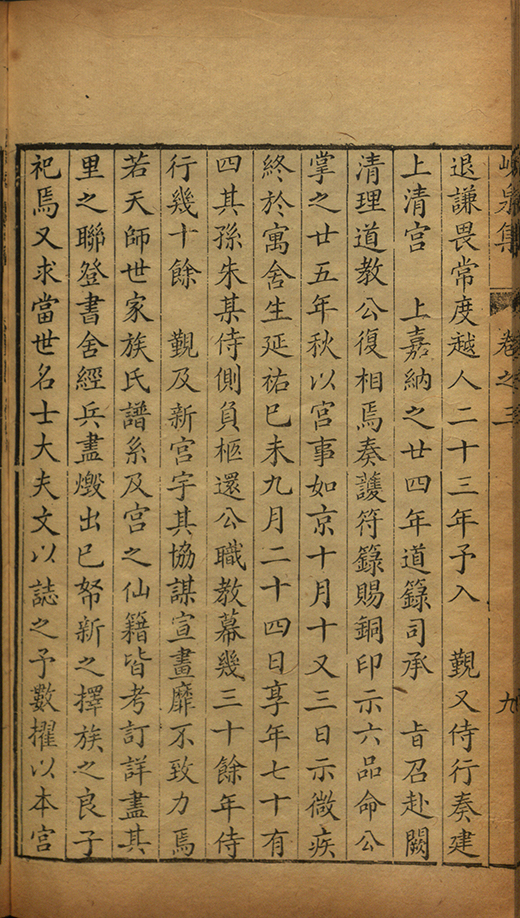 峴泉集 卷之三 九
退謙畏常度越人二十三年予入 覲又侍行奏建
上清宮 上嘉納之廿四年道籙司承 旨召赴闕
清理道教公復相焉奏護符籙賜銅印示六品命公
掌之廿五年秋以宮事如京十月十又三日示微疾
終於寓舍生延祐巳未九月二十四日享年七十有
四其孫朱某侍側負柩還公職教幕幾三十餘年侍
行幾十餘 覲及新宮宇其協謀宣畫靡不致力焉
若天師世家族氏譜系及宮之仙籍皆考訂詳盡其
里之聯登書舍經兵盡燬出巳帑新之擇族之良子
祀焉又求當世名士大夫文以誌之予數擢以本宮